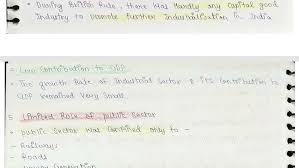 • During British Rule, there was Hardly any capital good
Industry to promote further Industrialisation in India
Low Contribution to GDP
• The growth Rate of Industrial Sector & its Contribution to
GDP remained Very Small.
5. Limited Role of Public Sector
• public Sector was Confined only to -
- Railways
- Roads